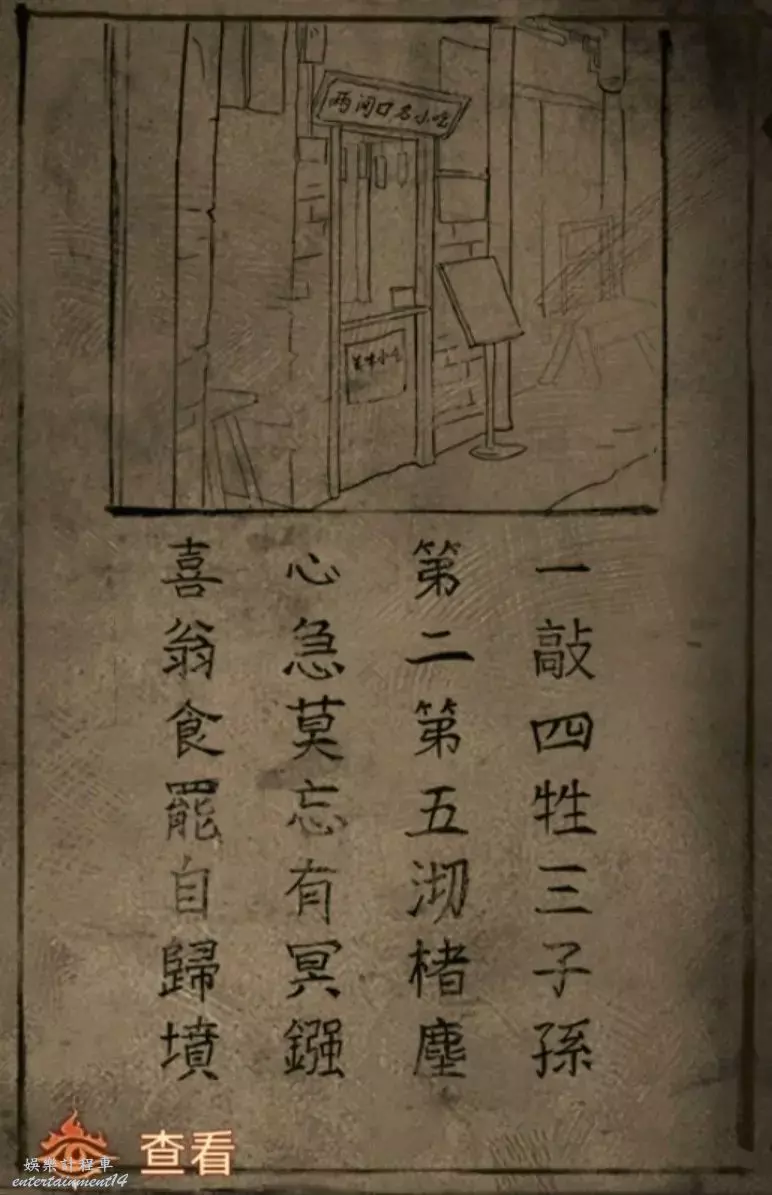 两河口名小吃
美味小吃
一敲四牲三子孫
第二第五沏楮塵
心急莫忘有冥鏹
喜翁食罷自歸墳
查看
娛樂計程車
entertainment14